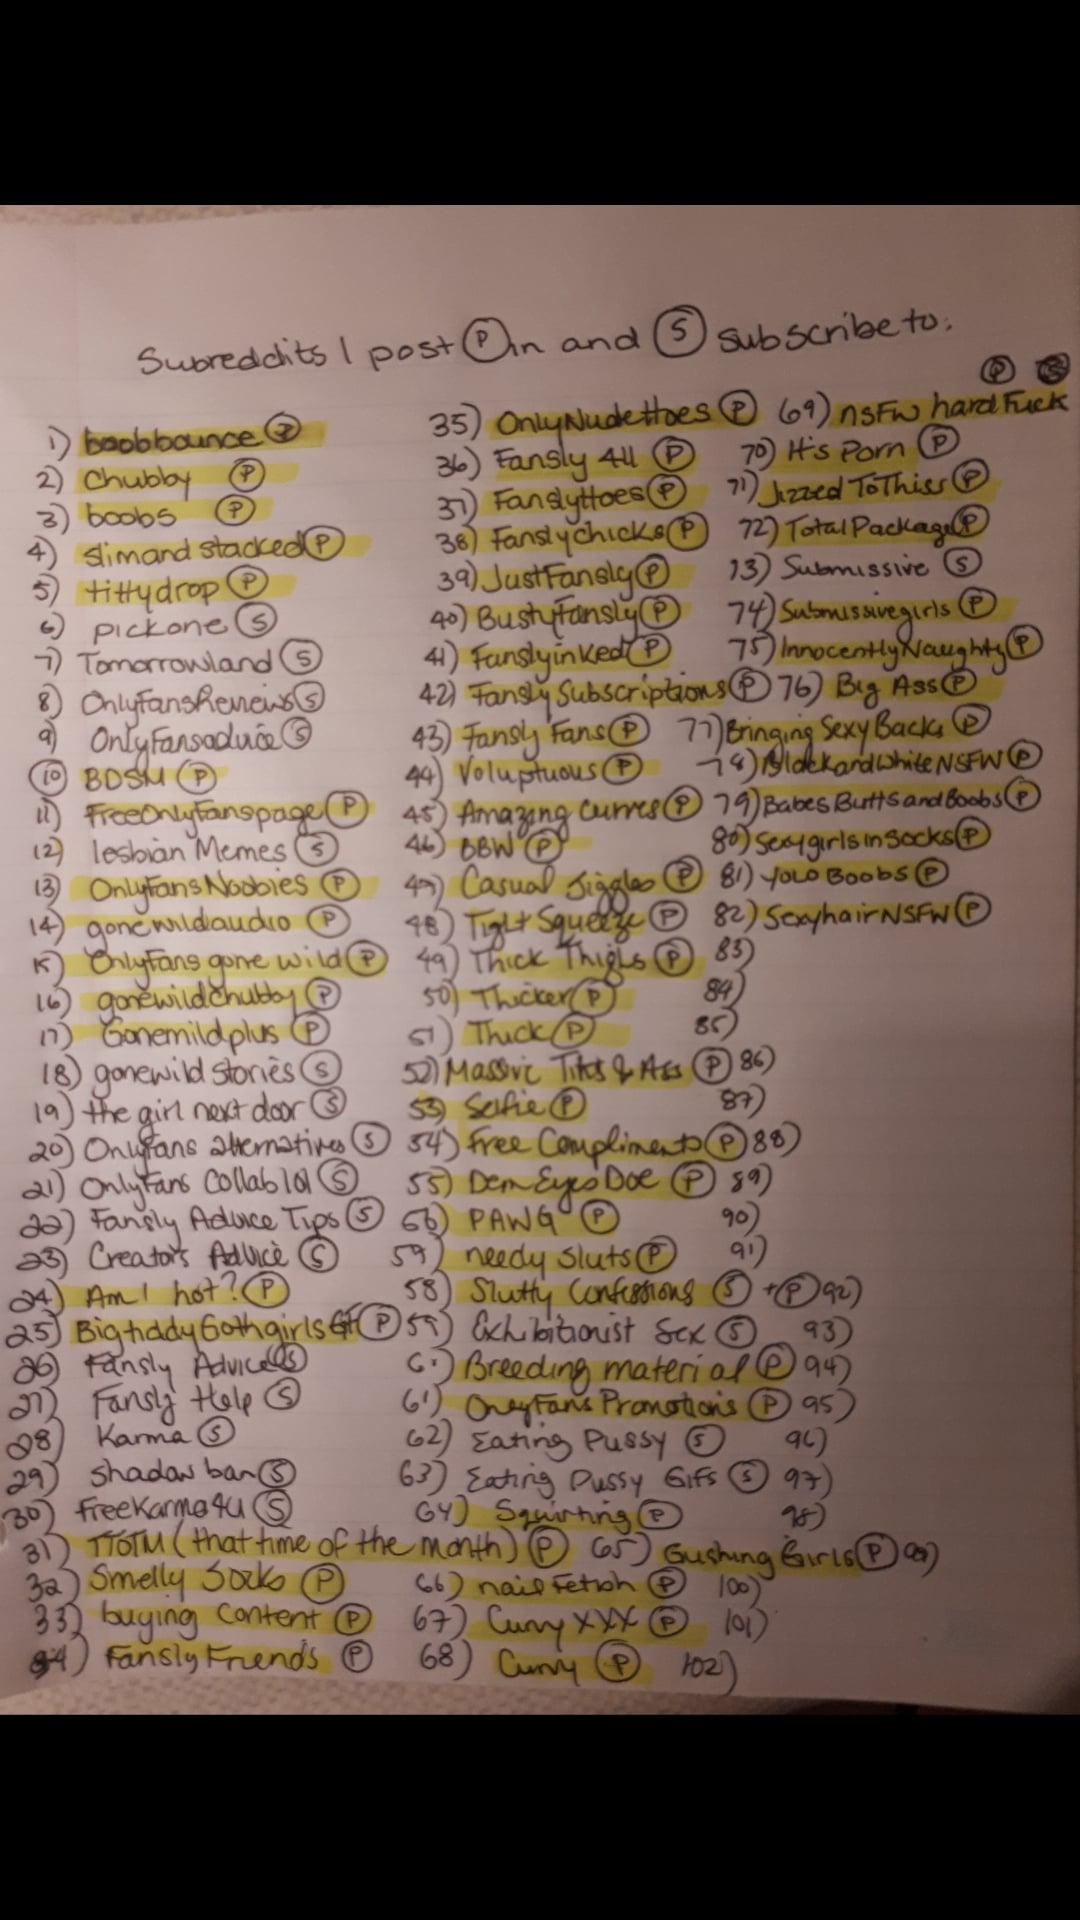 Subreddits I post Ⓟ in and Ⓢ subscribe to:
Ⓟ
1) boobbounce Ⓟ
2) Chubby Ⓟ
3) boobs Ⓟ
4) slimand stacked Ⓟ
5) tittydrop Ⓟ
6) pickone Ⓢ
7) Tomorrowland Ⓢ
8) OnlyfansReveiws Ⓢ
9) OnlyFansadvice Ⓢ
10) BDSM Ⓟ
11) FreeOnlyfanspage Ⓟ
12) lesbian Memes Ⓢ
13) Onlyfans Noobies Ⓟ
14) gonewildaudio Ⓟ
15) Onlyfans gone wild Ⓟ
16) gonewildchubby Ⓟ
17) Gonemildplus Ⓟ
18) gonewild stories Ⓢ
19) the girl next door Ⓢ
20) Onlyfans alternatives Ⓢ
21) Onlyfans Collab 101 Ⓢ
22) Fansly Advice Tips Ⓢ
23) Creators Advice Ⓢ
24) Am I hot? Ⓟ
25) BigtiddyGothgirls Ⓟ
26) Fansly Advice Ⓢ
27) Fansly Help Ⓢ
28) Karma Ⓢ
29) shadow ban Ⓢ
30) freeKarma4u Ⓢ
31) TTOTM (that time of the month) Ⓟ
32) Smelly Socks Ⓟ
33) buying content Ⓟ
34) Fansly Friends Ⓟ
35) OnlyNudettoes Ⓟ
36) Fansly 4U Ⓟ
37) Fanslyttoes Ⓟ
38) Fanslychicks Ⓟ
39) JustFansly Ⓟ
40) BustyFansly Ⓟ
41) Fanslyinked Ⓟ
42) Fansly Subscriptions Ⓟ
43) Fansly Fans Ⓟ
44) Voluptuous Ⓟ
45) Amazing Curves Ⓟ
46) BBW Ⓟ
47) Casual Jiggles Ⓟ
48) Tight Squeeze Ⓟ
49) Thick Thighs Ⓟ
50) Thicker Ⓟ
51) Thick Ⓟ
52) Massive Tits & Ass Ⓟ
53) Selfie Ⓟ
54) Free Compliments Ⓟ
55) Dem Eyes Doe Ⓟ
56) PAWG Ⓟ
59) needy sluts Ⓟ
58) Slutty Confessions Ⓢ + Ⓟ
59) Exhibitionist Sex Ⓢ
60) Breeding material Ⓟ
61) OnlyFans Promotions Ⓟ
62) Eating Pussy Ⓢ
63) Eating Pussy Gifs Ⓢ
64) Squirting Ⓟ
65) Gushing Girls Ⓟ
66) nail Fetish Ⓟ
67) Curvy XXX Ⓟ
68) Curvy Ⓟ
69) nsfw hardFuck
70) It's Porn Ⓟ
71) Jizzed To This Ⓟ
72) TotalPackage Ⓟ
73) Submissive Ⓢ
74) Submissivegirls Ⓟ
75) InnocentlyNaughty Ⓟ
76) Big Ass Ⓟ
77) Bringing SexyBack Ⓟ
78) BlackandWhiteNSFW Ⓟ
79) BabesButtsandBoobs Ⓟ
80) sexygirlsinsocks Ⓟ
81) YOLO BOOBS Ⓟ
82) SexyhairNSFW Ⓟ
83)
84)
85)
86)
87)
88)
89)
90)
91)
92)
93)
94)
95)
96)
97)
98)
99)
100)
101)
102)